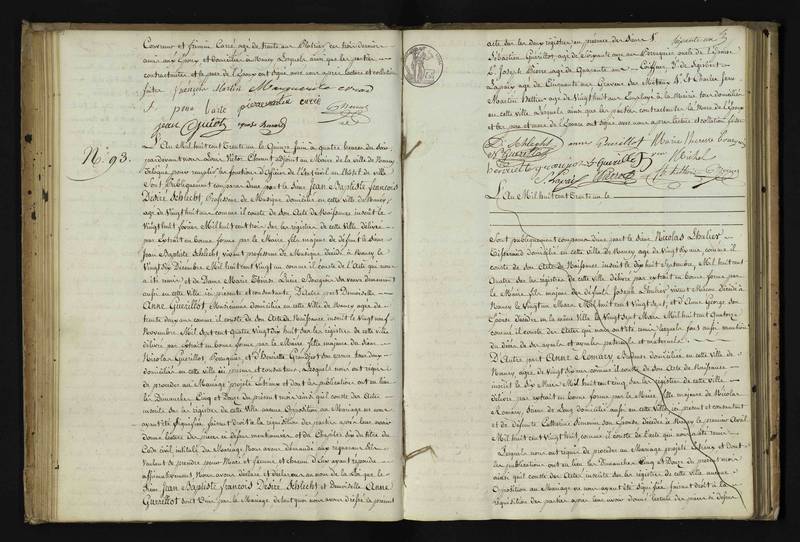 Couvreur et firmin Carré agé de trente ans Plâtrier les trois derniers
amis aux époux et domiciliés à Nancy Lesquels ainsi que les parties
contractantes et le pere de l'Epoux ont signé avec nous après lecture et collation
faites françois Martin Marguerite
f. pone Carré
jean Guiot
N.º 93.
L'An Mil huit Cent trente un le Quinze Juin à quatre heures du soir
pardevant nous adjoint au Maire de la ville de Nancy
délégué pour remplir les fonctions d'Officier de l'état civil en l'hôtel de Ville
Sont Publiquement comparus d'une part le Sieur Jean Baptiste françois
Désiré Schlecht Professeur de Musique domicilié en cette ville de Nancy
agé de Vingt huit ans comme il conste de son Acte de Naissance inscrit le
Vingt huit février Mil huit cent trois sur les registres de cette ville délivré
par Extrait en bonne forme par le Maire fils majeur de défunt le Sieur
Jean Baptiste Schlecht vivant professeur de Musique décédé à Nancy le
Vingt Six Décembre Mil huit cent Vingt un comme il conste de l'Acte qui nous
a été remis et de Dame Marie Thérèse sa veuve demeurant
aussi en cette ville ici présente et consentante, D'autre part Demoiselle
Anne Guerillot domiciliée en cette Ville de Nancy agée de
trente deux ans comme il conste de son Acte de Naissance inscrit le Vingt neuf
Novembre Mil Sept cent Quatre Vingt dix huit sur les registres de cette ville
délivré par Extrait en bonne forme par le Maire fille majeure du Sieur
Nicolas Guerillot, Perruquier et d'Henriette son épouse tous deux
domiciliés en cette ville ici présens et consentans, Lesquels nous ont requis
de procéder au Mariage projetté entr'eux et dont les publications ont eu lieu
les Dimanches Cinq et Douze du présent mois ainsi qu'il conste des Actes
inscrits sur les registres de cette Ville aucune Opposition au Mariage ne nous
ayant été signifiée faisant droit à la réquisition des parties après leur avoir
donné lecture des pièces ci dessus mentionnées et du Chapitre Six du titre du
Code civil intitulé du Mariage Nous avons demandé aux requérans s'ils
veulent se prendre pour Mari et femme et chacun d'eux ayant répondu
affirmativement Nous avons déclaré et déclarons au nom de la Loi que le
Sieur Jean Baptiste françois Désiré Schlecht et Demoiselle Anne
Guerillot sont Unis par le Mariage de tout quoi nous avons dressé le présent
acte sur les deux registres en présence des Sieurs
Sébastien Guerillot, agé de Soixante ans Perruquier oncle de l'Epouse
Joseph Pierre agé de Quarante ans Coiffeur,
agé de Cinquante ans Graveur sur Métaux et Charles
Martin agé de Vingt huit ans Employé à la Mairie tous domiciliés
en cette ville Lesquels ainsi que les parties contractantes la Mere de l'Epoux
et les pere et mere de l'Epouse ont signé avec nous après lecture et collation faites
D. Schlecht anne Guerillot Marie
Guerillot S. Guerillot Michel
L'An Mil huit cent Trente un le
Sont publiquement comparus d'une part le Sieur Nicolas Lhuilier
domicilié en cette ville de Nancy agé de Vingt Six ans comme il
conste de son Acte de Naissance inscrit le dix huit Septembre Mil huit cent
Quatre sur les registres de cette ville délivré par extrait en bonne forme par
le Maire fils majeur des défunts Joseph Lhuilier vivant Maçon décédé à
Nancy le Vingt un Mars Mil huit cent Vingt sept, et d'Anne George son
Epouse décédée en la même Ville le Vingt Sept Mars Mil huit cent Quatorze
comme il conste des Actes qui nous ont été remis lesquels font aussi mention
du décès de ses ayeuls et ayeules paternels et maternels.
D'Autre part Anne Romary domiciliée en cette ville de
Nancy agée de Vingt six ans comme il conste de son Acte de Naissance
inscrit le Six Mars Mil huit cent cinq sur les registres de cette ville
délivré par extrait en bonne forme par le Maire fille majeure de Nicolas
Romary, Scieur de Long domicilié aussi en cette Ville ici présent et consentant
et de défunte Catherine son Epouse décédée à Nancy le premier Avril
Mil huit cent Vingt huit, comme il conste de l'acte qui nous a été remis
Lesquels nous ont requis de procéder au Mariage projetté entr'eux et dont
les publications ont eu lieu les Dimanches Cinq et Douze du présent mois
ainsi qu'il conste des Actes inscrits sur les registres de cette ville aucune
Opposition au Mariage ne nous ayant été signifiée faisant droit à la
réquisition des parties après leur avoir donné lecture des pièces ci dessus